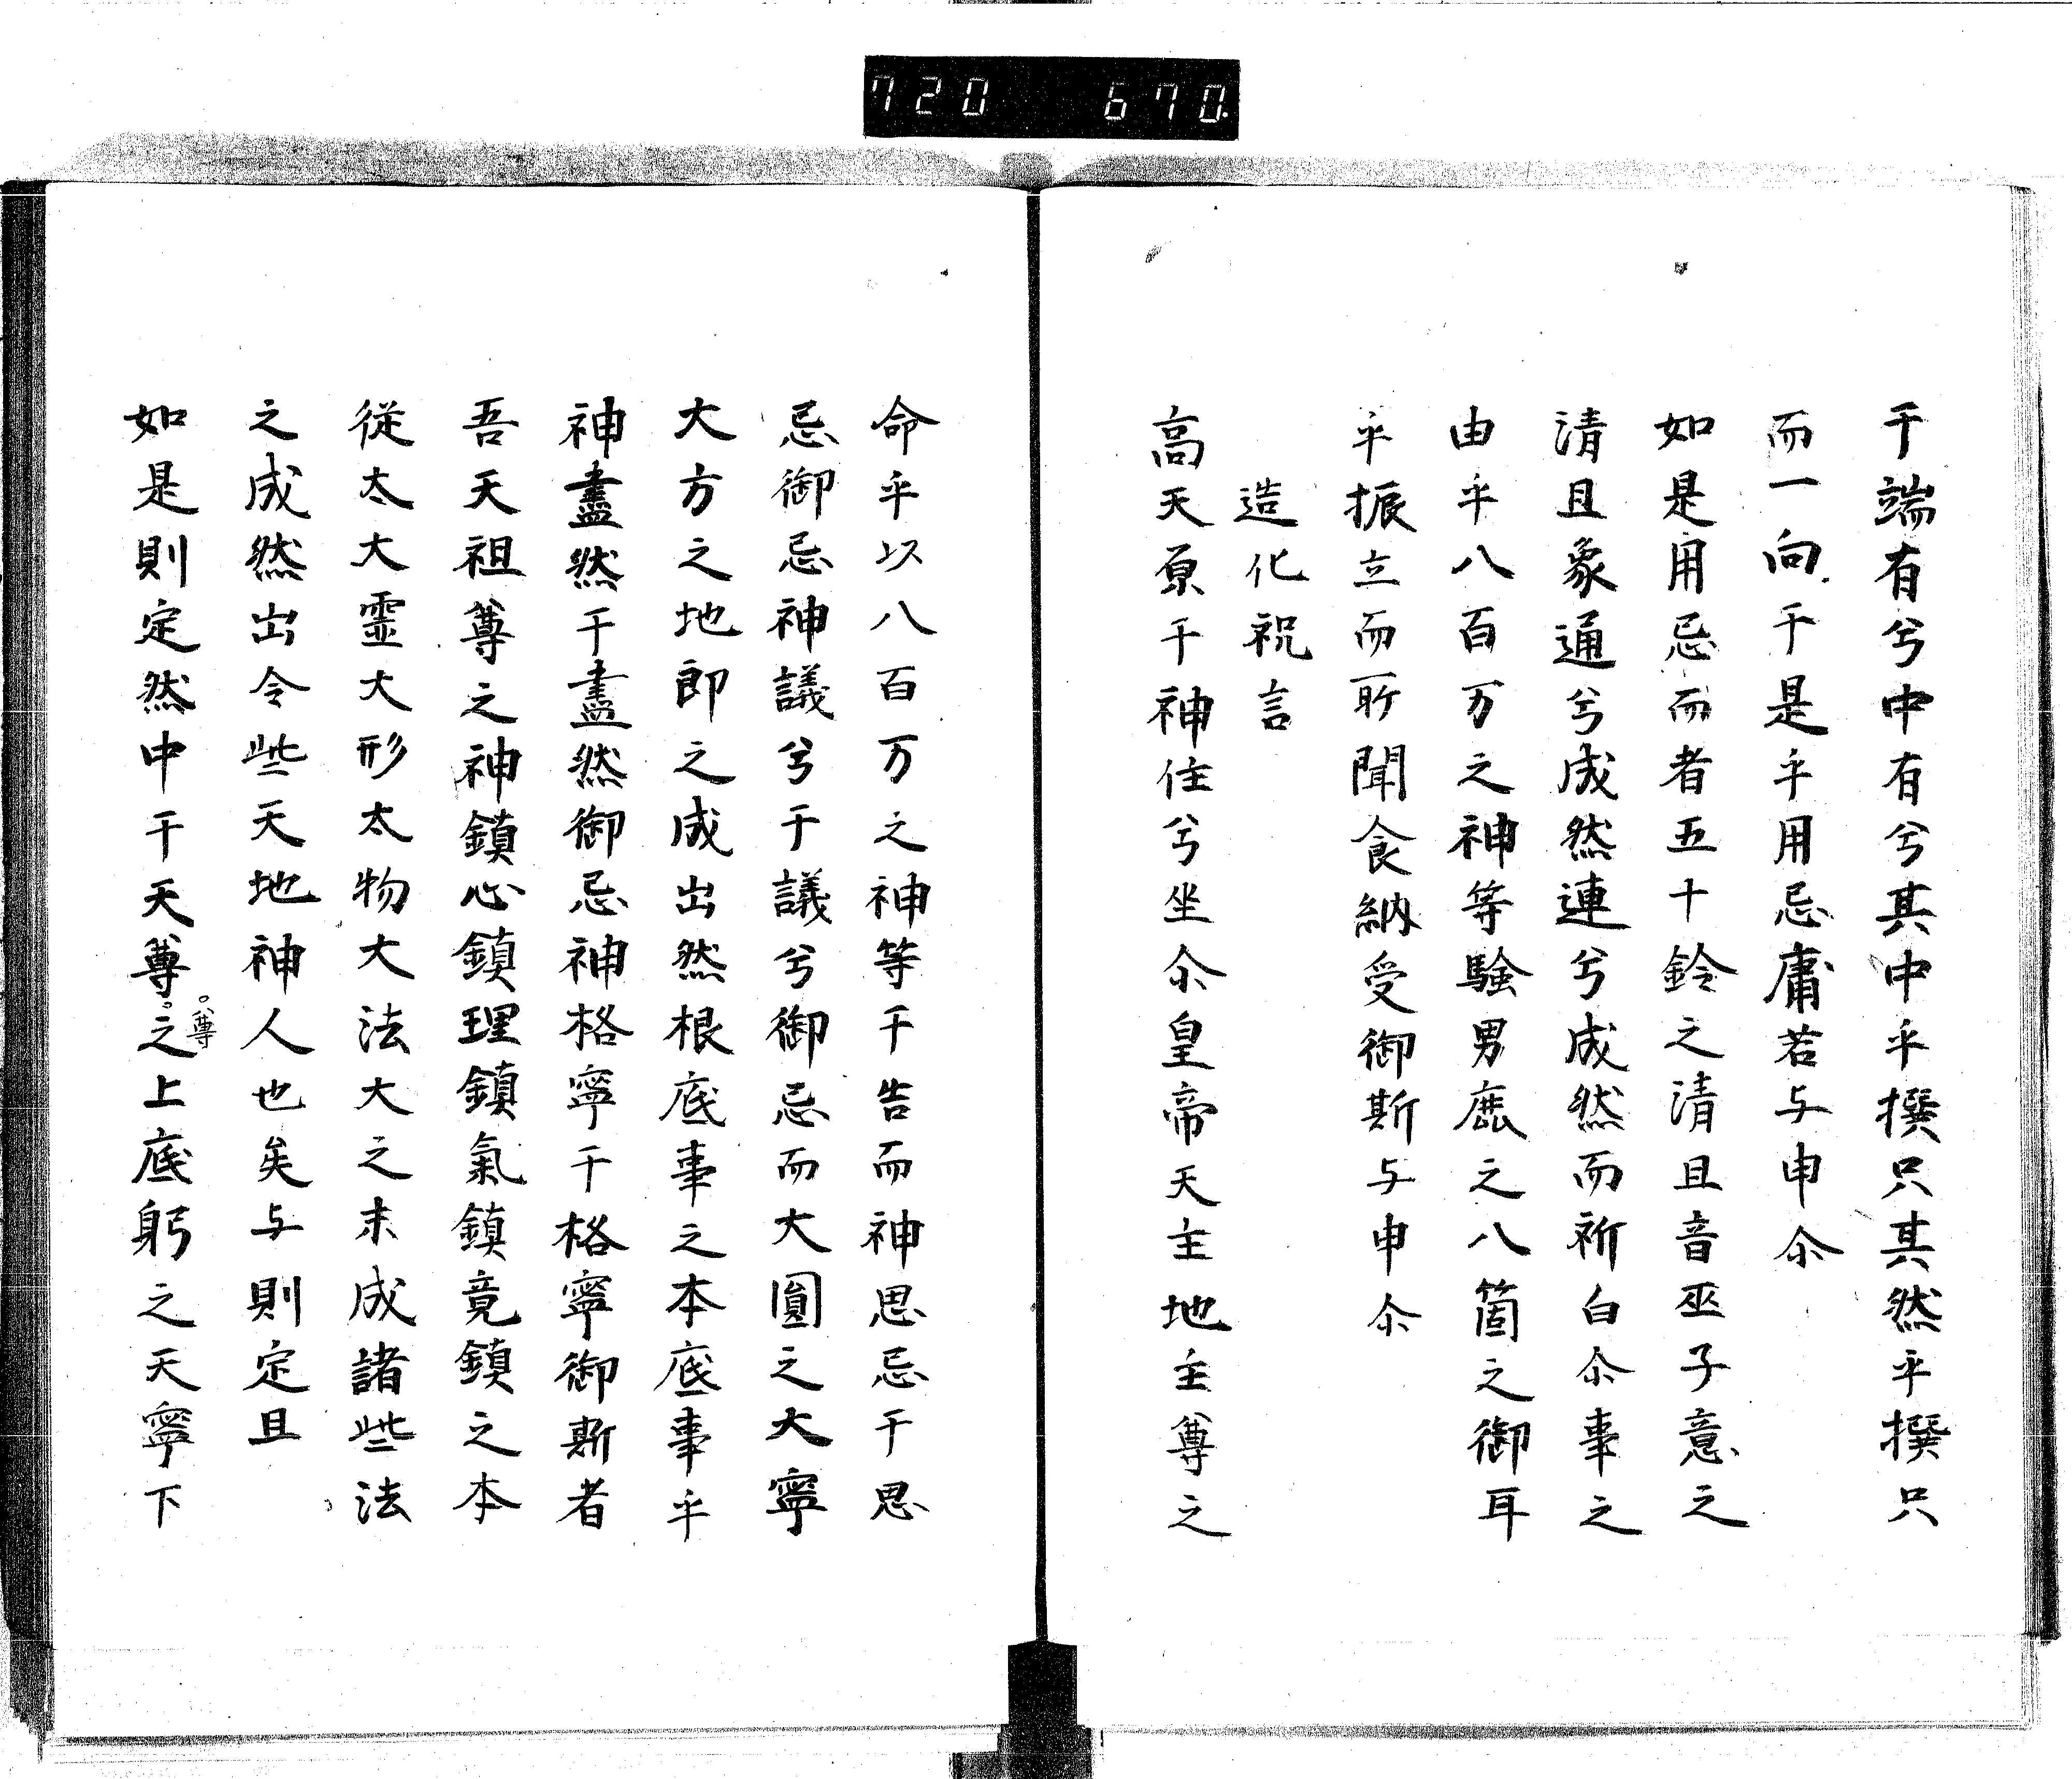 720 670.
于端有兮中有兮其中乎撰只其然乎撰只
而一向于是乎用忌庸若与申尒
如是用忌而者五十鈴之清且音巫子意之
清且象通兮成然連兮成然而祈白尒事之
由乎八百万之神等騐男鹿之八箇之御耳
乎振立而所聞食納受御斯与申尒
造化祝言
高天原于神住兮坐尒皇帝天主地主尊之
命乎以八百万之神等于告而神思忌于思
忌御忌神議兮于議兮御忌而大圓之大寧
大方之地即之成出然根底事之本底事乎
神盡然于盡然御忌神格寧于格寧御斯者
吾天祖尊之神鎮心鎮理鎮氣鎮竟鎮之本
從太大霊大形太物大法大之末成諸些法
之成然出令些天地神人也矣与則定且
如是則定然中于天尊之上底躬之天寧下
尊